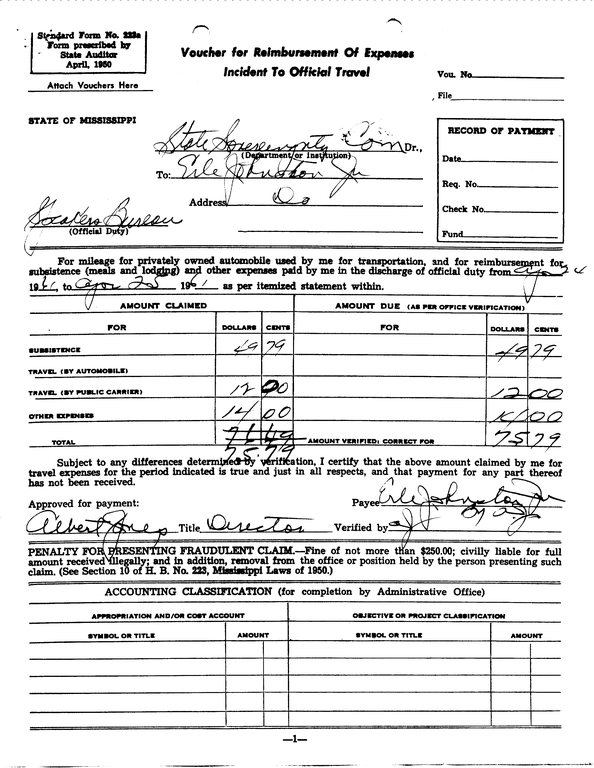 Standard Form No. 223a
Form prescribed by
State Auditor
April, 1950
Attach Vouchers Here
Voucher for Reimbursement Of Expenses
Incident To Official Travel
Vou. No.
File
STATE OF MISSISSIPPI
State Sovereignty Com Dr.,
(Department or Institution)
To: Erle Johnston Jr
Address Do
Speakers Bureau
(Official Duty)
RECORD OF PAYMENT
Date
Req. No.
Check No.
Fund
For mileage for privately owned automobile used by me for transportation, and for reimbursement for
subsistence (meals and lodging) and other expenses paid by me in the discharge of official duty from Apr 24
1961, to Apr 25 1961 as per itemized statement within.
AMOUNT CLAIMED AMOUNT DUE (AS PER OFFICE VERIFICATION)
FOR DOLLARS CENTS FOR DOLLARS CENTS
SUBSISTENCE 49 79 49 79
TRAVEL (BY AUTOMOBILE)
TRAVEL (BY PUBLIC CARRIER) 12 00 12 00
OTHER EXPENSES 14 00 14 00
TOTAL AMOUNT VERIFIED: CORRECT FOR 75 79
75.79
Subject to any differences determined by verification, I certify that the above amount claimed by me for
travel expenses for the period indicated is true and just in all respects, and that payment for any part thereof
has not been received.
Approved for payment: Payee Erle Johnston Jr
Albert Jones Title Director Verified by
PENALTY FOR PRESENTING FRAUDULENT CLAIM.—Fine of not more than $250.00; civilly liable for full
amount received illegally; and in addition, removal from the office or position held by the person presenting such
claim. (See Section 10 of H. B. No. 223, Mississippi Laws of 1950.)
ACCOUNTING CLASSIFICATION (for completion by Administrative Office)
APPROPRIATION AND/OR COST ACCOUNT OBJECTIVE OR PROJECT CLASSIFICATION
SYMBOL OR TITLE AMOUNT SYMBOL OR TITLE AMOUNT
—1—